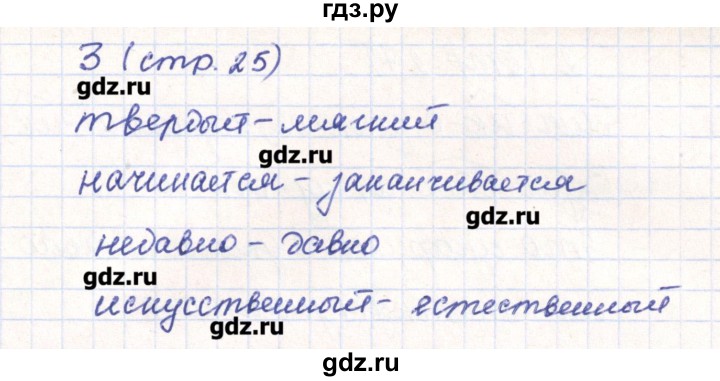 гдз.ру
3 (стр. 25)
gdz.ru
твердый - мягкий
gdz.ru
начинается - заканчивается
gdz.ru
недавно - давно
gdz.ru
искусственный - естественный
gdz.ru
gdz.ru